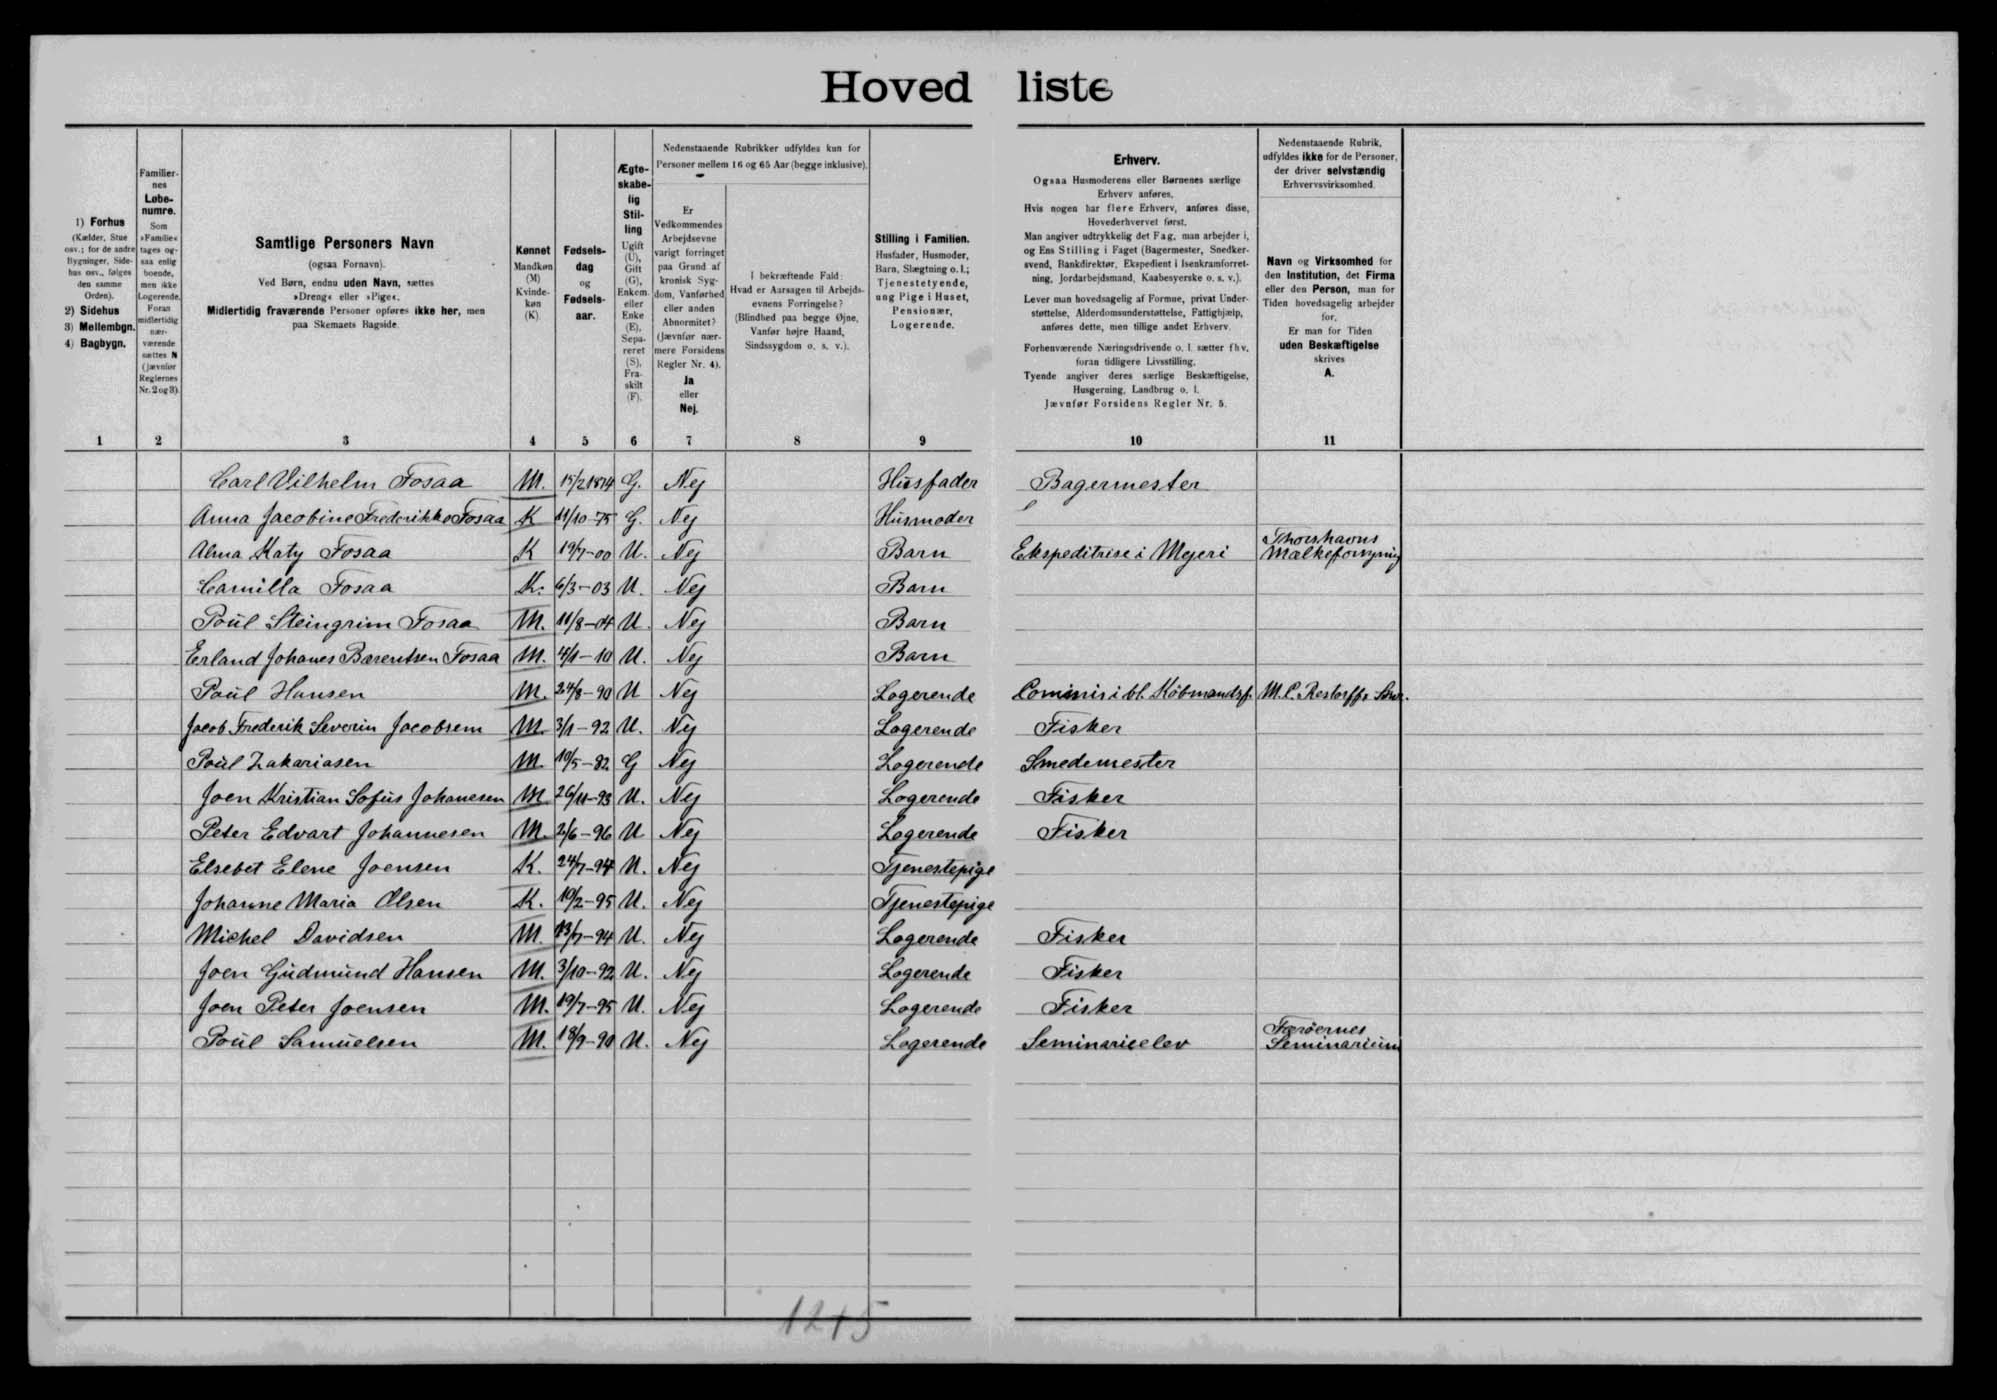 Hovedliste
Nedenstaaende Rubrikker udfyldes kun for
Personer mellem 16 og 65 Aar (begge inklusive).
Nedenstaaende Rubrik,
udfyldes ikke for de Personer,
der driver selvstændig
Erhvervsvirksomhed.
1) Forhus
(Kælder, Stue
osv.; for de andre
Bygninger, Side-
hus osv., følges
den samme
Orden).
2) Sidehus
3) Mellembgn.
4) Bagbygn.
Familier-
nes
Løbe-
numre.
Som
»Familie«
tages og-
saa enlig
boende,
men ikke
Logerende.
Foran
midlertidig
nær-
værende
sættes N
(jævnfør
Reglernes
Nr. 2 og 3).
Samtlige Personers Navn
(ogsaa Fornavn).
Ved Børn, endnu uden Navn, sættes
»Dreng« eller »Pige«.
Midlertidig fraværende Personer opføres ikke her, men
paa Skemaets Bagside.
Kønnet
Mandkøn
(M)
Kvinde-
køn
(K).
Fødsels-
dag
og
Fødsels-
aar.
Ægte-
skabe-
lig
Stil-
ling
Ugift
(U),
Gift
(G),
Enkem.
eller
Enke
(E),
Sepa-
reret
(S),
Fra-
skilt
(F).
Er
Vedkommendes
Arbejdsevne
varigt forringet
paa Grund af
kronisk Syg-
dom, Vanførhed
eller anden
Abnormitet?
(Jævnfør nær-
mere Forsidens
Regler Nr. 4).
Ja
eller
Nej.
I bekræftende Fald:
Hvad er Aarsagen til Arbejds-
evnens Forringelse?
(Blindhed paa begge Øjne,
Vanfør højre Haand,
Sindssygdom o. s. v.).
Stilling i Familien.
Husfader, Husmoder,
Barn, Slægtning o. l.;
Tjenestetyende,
ung Pige i Huset,
Pensionær,
Logerende.
Erhverv.
Ogsaa Husmoderens eller Børnenes særlige
Erhverv anføres.
Hvis nogen har flere Erhverv, anføres disse,
Hovederhvervet først.
Man angiver udtrykkelig det Fag, man arbejder i,
og Ens Stilling i Faget (Bagermester, Snedker-
svend, Bankdirektør, Ekspedient i Isenkramforret-
ning, Jordarbejdsmand, Kaabesyerske o. s. v.).
Lever man hovedsagelig af Formue, privat Under-
støttelse, Alderdomsunderstøttelse, Fattighjælp,
anføres dette, men tillige andet Erhverv.
Forhenværende Næringsdrivende o. l. sætter fhv.
foran tidligere Livsstilling.
Tyende angiver deres særlige Beskæftigelse,
Husgerning, Landbrug o. l.
Jævnfør Forsidens Regler Nr. 5.
Navn og Virksomhed for
den Institution, det Firma
eller den Person, man for
Tiden hovedsagelig arbejder
for.
Er man for Tiden
uden Beskæftigelse
skrives
A.
1 2 3 4 5 6 7 8 9 10 11
Carl Vilhelm Fosaa M. 15/2 1874 G. Nej Husfader Bagermester
Anna Jacobine Frederikke Fosaa K 11/10-75 G. Nej Husmoder
Alma Katy Fosaa K 19/7-00 U. Nej Barn Ekspeditrise i Mejeri Thorshavns Mælkeforsyning
Camilla Fosaa K. 6/3-03 U. Nej Barn
Poul Steingrim Fosaa M. 11/8-04 U. Nej Barn
Erland Johanes Barentsen Fosaa M. 4/1-10 U. Nej Barn
Poul Hansen M. 24/8-90 U Nej Logerende Commis i bl. Købmandsf. M. C. Restorffs Søn.
Jacob Frederik Severin Jacobsen M. 3/1-92 U. Nej Logerende Fisker
Poul Zakariasen M. 10/5-82 G Nej Logerende Smedemester
Joen Kristian Sofus Johanesen M 26/11-93 U. Nej Logerende Fisker
Peter Edvart Johannesen M. 2/6-96 U Nej Logerende Fisker
Elsebet Elene Joensen K. 24/7-94 U. Nej Tjenestepige
Johanne Maria Olsen K. 10/2-95 U. Nej Tjenestepige
Michel Davidsen M. 13/7-94 U. Nej Logerende Fisker
Joen Gudmund Hansen M. 3/10-92 U. Nej Logerende Fisker
Joen Peter Joensen M. 19/7-95 U. Nej Logerende Fisker
Poul Samuelsen M. 18/9-90 U. Nej Logerende Seminarieelev Færøernes Seminarium
12+5